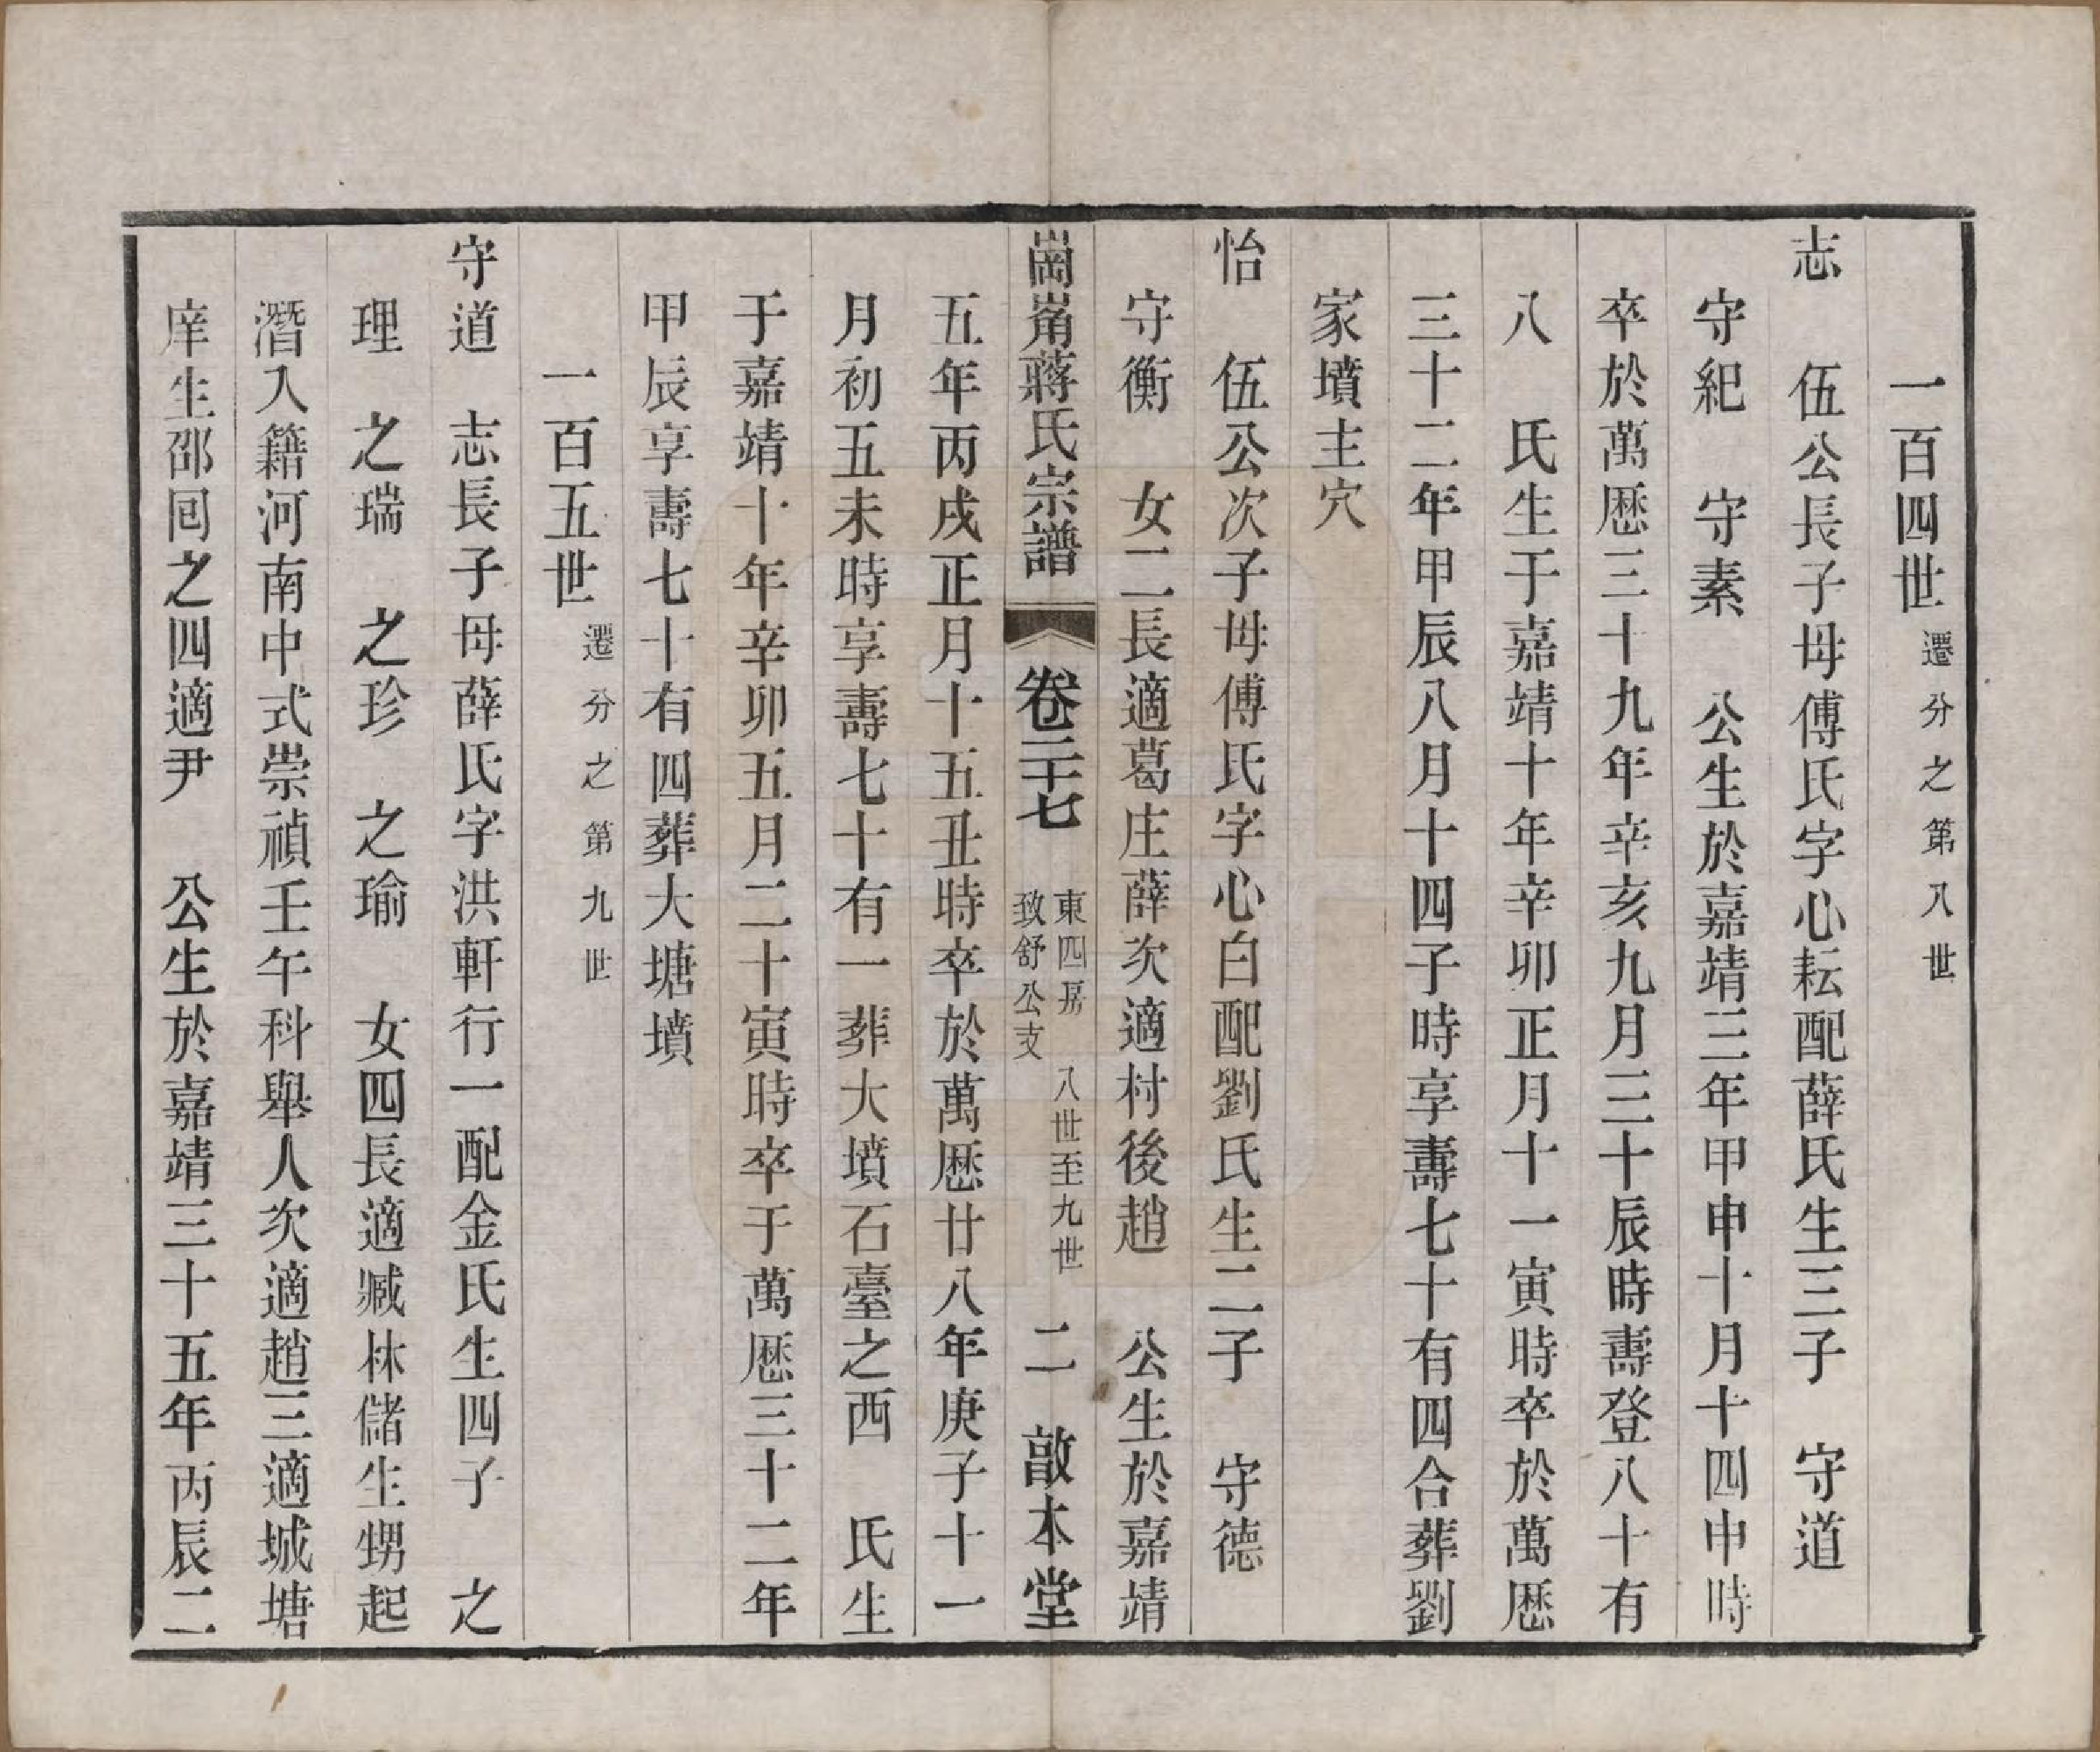 一百四世 遷分之第八世
志 伍公長子母傅氏字心耘配薛氏生三子 守道
守紀 守素 公生於嘉靖三年甲申十月十四申時
卒於萬厯三十九年辛亥九月三十辰時壽登八十有
八 氏生于嘉靖十年辛卯正月十一寅時卒於萬厯
三十二年甲辰八月十四子時享壽七十有四合葬劉
家墳主穴
怡 伍公次子母傅氏字心白配劉氏生二子 守德
守衡 女二長適葛庄薛次適村後趙 公生於嘉靖
崗耑蔣氏宗譜 卷二十七 東四房 致舒公支 八世至九世 二 敦本堂
五年丙戌正月十五丑時卒於萬厯廿八年庚子十一
月初五未時享壽七十有一葬大墳石臺之西 氏生
于嘉靖十年辛卯五月二十寅時卒于萬厯三十二年
甲辰享壽七十有四葬大塘墳
一百五世 遷分之第九世
守道 志長子母薛氏字洪軒行一配金氏生四子 之
理 之瑞 之珍 之瑜 女四長適臧林儲生甥起
潛入籍河南中式崇禎壬午科舉人次適趙三適城塘
庠生邵囘之四適尹 公生於嘉靖三十五年丙辰二